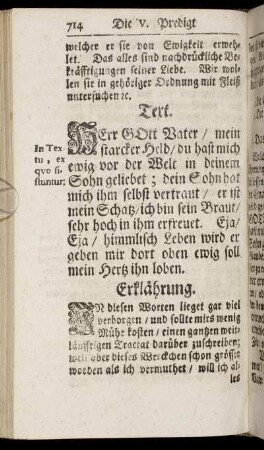 714 Die V. Predigt
welcher er sie von Ewigkeit erweh-
let. Das alles sind nachdrückliche Be-
kräfftigungen seiner Liebe. Wir wol-
len sie in gehöriger Ordnung mit Fleiß
untersuchen ꝛc.
Text.
In Tex-
tu, ex
qvo si-
stuntur:
HErr GOtt Vater / mein
starcker Held / du hast mich
ewig vor der Welt in deinem
Sohn geliebet; dein Sohn hat
mich ihm selbst vertraut / er ist
mein Schatz / ich bin sein Braut /
sehr hoch in ihm erfreuet. Eja /
Eja / himmlisch Leben wird er
geben mir dort oben ewig soll
mein Hertz ihn loben.
Erklährung.
IN diesen Worten lieget gar viel
verborgen / und sollte mirs wenig
Mühe kosten / einen gantzen weit-
läufftigen Tractat darüber zuschreiben;
weil aber dieses Werckchen schon grösser
worden als ich vermuthet / will ich al-
les